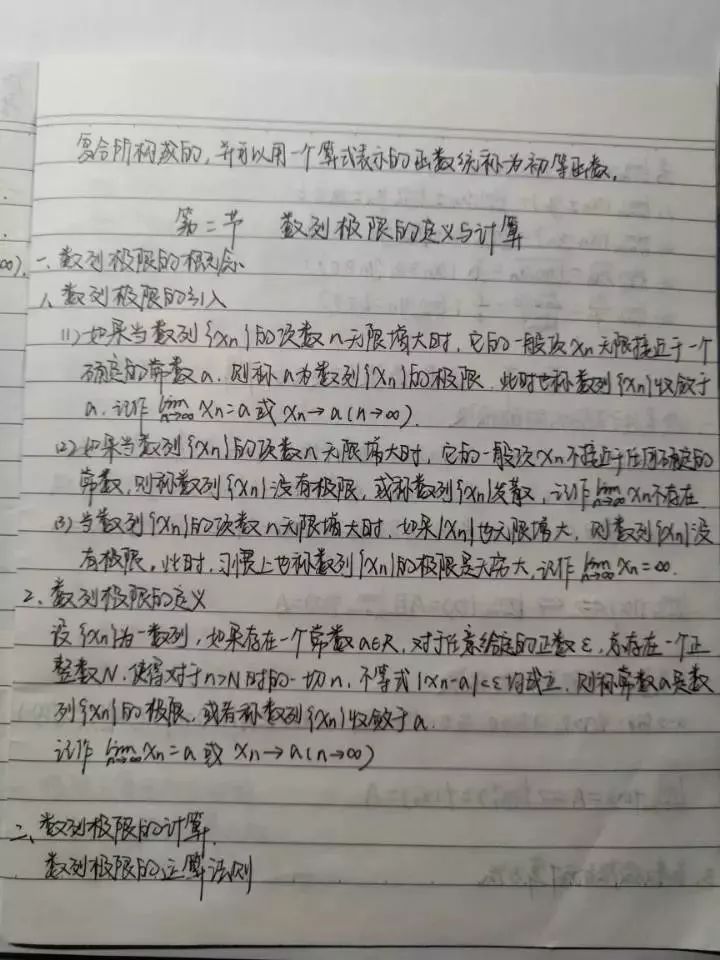 复合所构成的,并可以用一个算式表示的函数统称为初等函数.
第二节 数列极限的定义与计算
一、数列极限的概念
1、数列极限的引入
(1)如果当数列{xn}的项数n无限增大时,它的一般项xn无限接近于一个
确定的常数a,则称a为数列{xn}的极限,此时也称数列{xn}收敛于
a.记作 lim n→∞ xn=a 或 xn→a(n→∞).
(2)如果当数列{xn}的项数n无限增大时,它的一般项xn不接近于任何确定的
常数,则称数列{xn}没有极限,或称数列{xn}发散,记作 lim n→∞ xn不存在
(3)当数列{xn}的项数n无限增大时,如果|xn|也无限增大,则数列{xn}没
有极限,此时,习惯上也称数列{xn}的极限是无穷大,记作 lim n→∞ xn=∞.
2、数列极限的定义
设{xn}为一数列,如果存在一个常数a∈R,对于任意给定的正数ε,总存在一个正
整数N,使得对于n>N时的一切n,不等式|xn-a|<ε均成立,则称常数a是数
列{xn}的极限,或者称数列{xn}收敛于a.
记作 lim n→∞ xn=a 或 xn→a(n→∞)
二、数列极限的计算
数列极限的运算法则